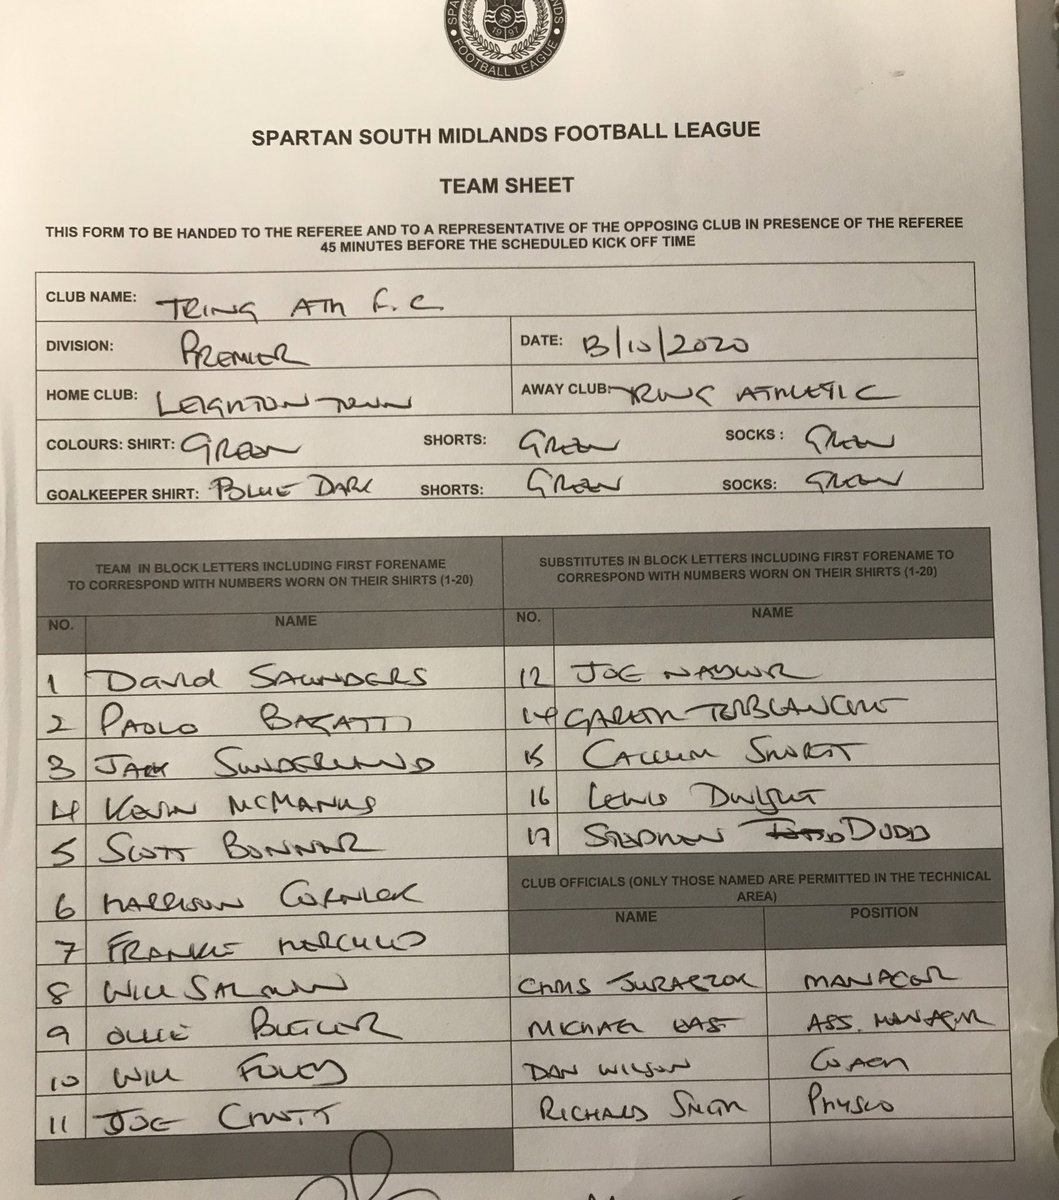 SPARTAN SOUTH MIDLANDS FOOTBALL LEAGUE
1997
TEAM SHEET
THIS FORM TO BE HANDED TO THE REFEREE AND TO A REPRESENTATIVE OF THE OPPOSING CLUB IN PRESENCE OF THE REFEREE
45 MINUTES BEFORE THE SCHEDULED KICK OFF TIME
CLUB NAME: TRING ATH F.C.
DIVISION: PREMIER DATE: 13/10/2020
HOME CLUB: LEIGHTON TOWN AWAY CLUB: TRING ATHLETIC
COLOURS: SHIRT: GREEN SHORTS: GREEN SOCKS: GREEN
GOALKEEPER SHIRT: BLUE DARK SHORTS: GREEN SOCKS: GREEN
TEAM IN BLOCK LETTERS INCLUDING FIRST FORENAME
TO CORRESPOND WITH NUMBERS WORN ON THEIR SHIRTS (1-20)
NO. NAME
1 David SAUNDERS
2 PAOLO BAGATTI
3 JACK SUNDERLAND
4 KEVIN MCMANUS
5 SCOTT BONNAR
6 HARRISON
7 FRANKIE
8 WILL
9 OLLIE
10 WILL FOLEY
11 JOE
SUBSTITUTES IN BLOCK LETTERS INCLUDING FIRST FORENAME TO
CORRESPOND WITH NUMBERS WORN ON THEIR SHIRTS (1-20)
NO. NAME
12 JOE
14 GARETH TERBLANCHE
15 CALLUM
16 LEWIS Dwight
17 STEPHEN DUDD
CLUB OFFICIALS (ONLY THOSE NAMED ARE PERMITTED IN THE TECHNICAL
AREA)
NAME POSITION
CHRIS MANAGER
MICHAEL EAST ASS. MANAGER
DAN WILSON COACH
RICHARD SMITH PHYSIO